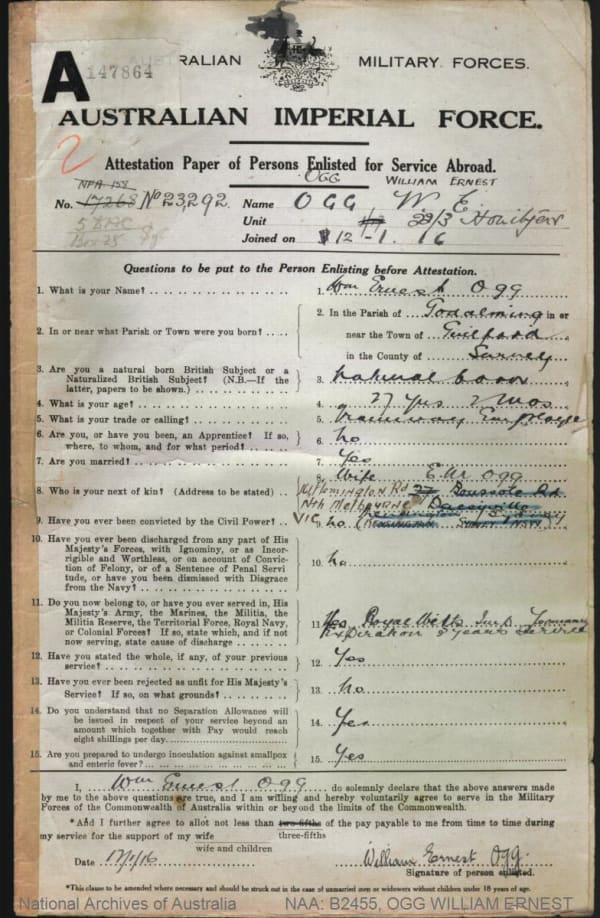 A
147864
RALIAN MILITARY FORCES.
AUSTRALIAN IMPERIAL FORCE.
2
Attestation Paper of Persons Enlisted for Service Abroad.
OGG WILLIAM ERNEST
No. 17268 No 23,292. Name OGG W. E.
Unit 22/3 Howitzer
Joined on 12-1.16
Questions to be put to the Person Enlisting before Attestation.
1. What is your Name? 1. Wm Ernest Ogg
2. In or near what Parish or Town were you born? 2. In the Parish of Godalming in or
near the Town of Guilford
in the County of Surrey
3. Are you a natural born British Subject or a
Naturalized British Subject? (N.B.—If the
latter, papers to be shown.) 3. natural born
4. What is your age? 4. 27 Yrs 2 Mos
5. What is your trade or calling? 5. Tramway Employe
6. Are you, or have you been, an Apprentice? If so,
where, to whom, and for what period? 6. No
7. Are you married? 7. Yes
8. Who is your next of kin? (Address to be stated) 8. Wife E. M. Ogg
Flemington Rd
Nth Melbourne
VIC
9. Have you ever been convicted by the Civil Power? no
10. Have you ever been discharged from any part of His
Majesty's Forces, with Ignominy, or as Incor-
rigible and Worthless, or on account of Convic-
tion of Felony, or of a Sentence of Penal Servi
tude, or have you been dismissed with Disgrace
from the Navy? 10. no
11. Do you now belong to, or have you ever served in, His
Majesty's Army, the Marines, the Militia, the
Militia Reserve, the Territorial Force, Royal Navy,
or Colonial Forces? If so, state which, and if not
now serving, state cause of discharge 11. Yes, Royal Wilts Yeomanry
expiration years service
12. Have you stated the whole, if any, of your previous
service? 12. Yes
13. Have you ever been rejected as unfit for His Majesty's
Service? If so, on what grounds? 13. No
14. Do you understand that no Separation Allowance will
be issued in respect of your service beyond an
amount which together with Pay would reach
eight shillings per day. 14. Yes
15. Are you prepared to undergo inoculation against smallpox
and enteric fever? 15. Yes
I, Wm Ernest Ogg do solemnly declare that the above answers made
by me to the above questions are true, and I am willing and hereby voluntarily agree to serve in the Military
Forces of the Commonwealth of Australia within or beyond the limits of the Commonwealth.
*And I further agree to allot not less than two-fifths of the pay payable to me from time to time during
three-fifths
my service for the support of my wife
wife and children
Date 17/1/16 William Ernest Ogg.
Signature of person enlisted.
*This clause to be amended where necessary and should be struck out in the case of unmarried men or widowers without children under 18 years of age.
National Archives of Australia NAA: B2455, OGG WILLIAM ERNEST